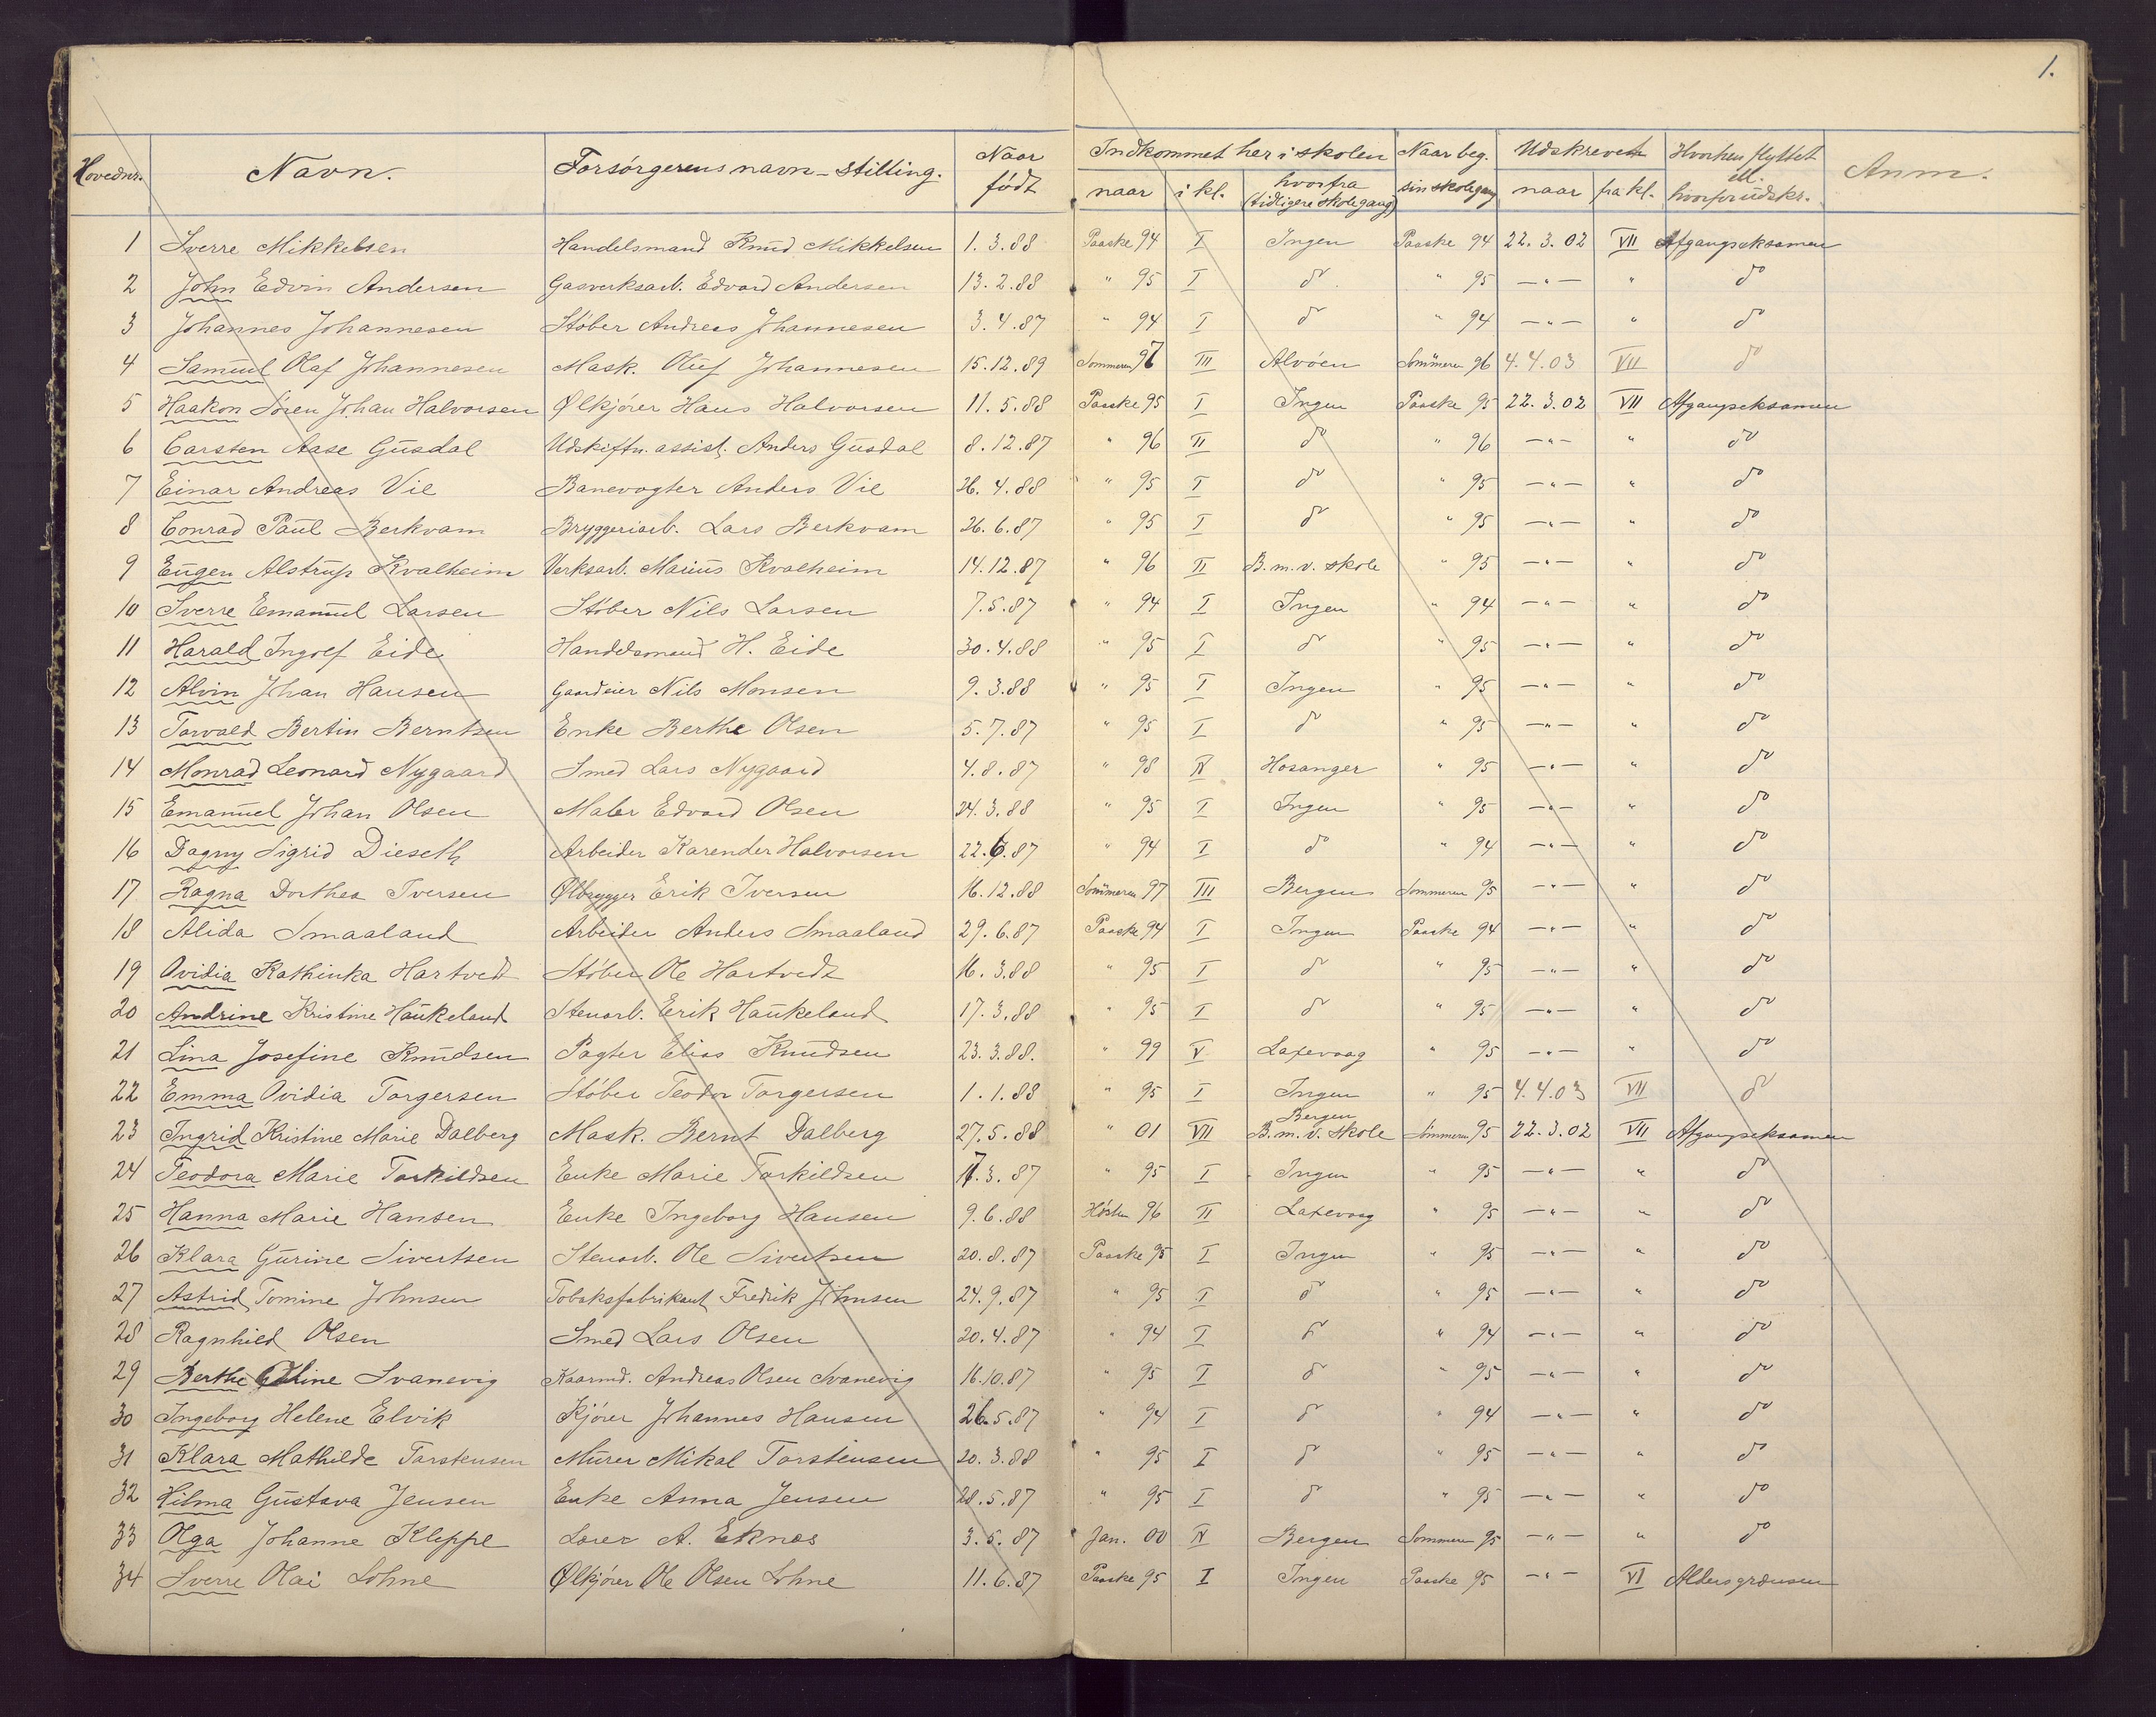 1.
Hovednr. Navn. Forsórgerens navn - stilling. Naar født Indkommet her i skolen Naar beg. sin skolegang Udskreven Hvorhen flyttet ell. hvorfor udskr. Anm.
naar i kl. hvorfra (tidligere skolegang) naar fra kl.
1 Sverre Mikkelsen Handelsmand Knud Mikkelsen 1.3.88 Paaske 94 I Ingen Paaske 94 22.3.02 VII Afgangseksamen
2 John Edvin Andersen Gasverksarb. Edvard Andersen 13.2.88 " 95 I do " 95 —"— " do
3 Johannes Johannesen Støber Andreas Johannesen 3.4.87 " 94 I do " 94 —"— " do
4 Samuel Olaf Johannesen Mask. Oluf Johannesen 15.12.89 Sommeren 97 III Alvøen Sommeren 96 4.4.03 VII do
5 Haakon Søren Johan Halvorsen Ølkjører Hans Halvorsen 11.5.88 Paaske 95 I Ingen Paaske 95 22.3.02 VII Afgangseksamen
6 Carsten Aase Gusdal Udskiftn. assist. Anders Gusdal 8.12.87 " 96 II do " 96 —"— " do
7 Einar Andreas Vie Banevogter Anders Vie 26.4.88 " 95 I do " 95 —"— " do
8 Conrad Paul Berkvam Bryggeriarb. Lars Berkvam 26.6.87 " 95 I do " 95 —"— " do
9 Eugen Alstrup Kvalheim Verksarb. Marius Kvalheim 14.12.87 " 96 II B.m.v. skole " 95 —"— " do
10 Sverre Emanuel Larsen Støber Nils Larsen 7.5.87 " 94 I Ingen " 94 —"— " do
11 Harald Ingolf Eide Handelsmand H. Eide 30.4.88 " 95 I do " 95 —"— " do
12 Alvin Johan Hansen Gaardeier Nils Monsen 9.3.88 " 95 I Ingen " 95 —"— " do
13 Torvald Bertin Berntsen Enke Berthe Olsen 5.7.87 " 95 I do " 95 —"— " do
14 Monrad Leonard Nygaard Smed Lars Nygaard 4.8.87 " 98 IV Hosanger " 95 —"— " do
15 Emanuel Johan Olsen Maler Edvard Olsen 24.3.88 " 95 I Ingen " 95 —"— " do
16 Dagny Sigrid Dieseth Arbeider Karender Halvorsen 22.6.87 " 94 I do " 94 —"— " do
17 Ragna Dorthea Iversen Ølbrygger Erik Iversen 16.12.88 Sommeren 97 III Bergen Sommeren 95 —"— " do
18 Alida Smaaland Arbeider Anders Smaaland 29.6.87 Paaske 94 I Ingen Paaske 94 —"— " do
19 Ovidia Kathinka Hartvedt Støber Ole Hartvedt 16.3.88 " 95 I do " 95 —"— " do
20 Andrine Kristine Haukeland Stenarb. Erik Haukeland 17.3.88 " 95 I do " 95 —"— " do
21 Lina Josefine Knudsen Pagter Elias Knudsen 23.3.88. " 99 V Laxevaag " 95 —"— " do
22 Emma Ovidia Torgersen Støber Teodor Torgersen 1.1.88 " 95 I Ingen " 95 4.4.03 VII do
23 Ingrid Kristine Marie Dalberg Mask. Bernt Dalberg 27.5.88 " 01 VII Bergen B.m.v. skole Sommeren 95 22.3.02 VII Afgangseksamen
24 Teodora Marie Torkildsen Enke Marie Torkildsen 17.3.87 " 95 I Ingen " 95 —"— " do
25 Hanna Marie Hansen Enke Ingeborg Hansen 9.6.88 Høsten 96 II Laxevaag " 95 —"— " do
26 Klara Gurine Sivertsen Stenarb. Ole Sivertsen 20.8.87 Paaske 95 I Ingen " 95 —"— " do
27 Astrid Tomine Johnsen Tobaksfabrikant Fredrik Johnsen 24.9.87 " 95 I do " 95 —"— " do
28 Ragnhild Olsen Smed Lars Olsen 20.4.87 " 94 I do " 94 —"— " do
29 Berthe Oline Svanevig Kaarmd. Andreas Olsen Svanevig 16.10.87 " 95 I do " 95 —"— " do
30 Ingeborg Helene Elvik Kjører Johannes Hansen 26.5.87 " 94 I do " 94 —"— " do
31 Klara Mathilde Torstensen Murer Mikal Torstensen 20.3.88 " 95 I do " 95 —"— " do
32 Hilma Gustava Jensen Enke Anna Jensen 28.5.87 " 95 I do " 95 —"— " do
33 Olga Johanne Kleppe Lærer A. Eknes 3.5.87 Jan. 00 IV Bergen Sommeren 95 —"— " do
34 Sverre Olai Lohne Ølkjører Ole Olsen Lohne 11.6.87 Paaske 95 I Ingen Paaske 95 —"— VI Aldersgrænsen